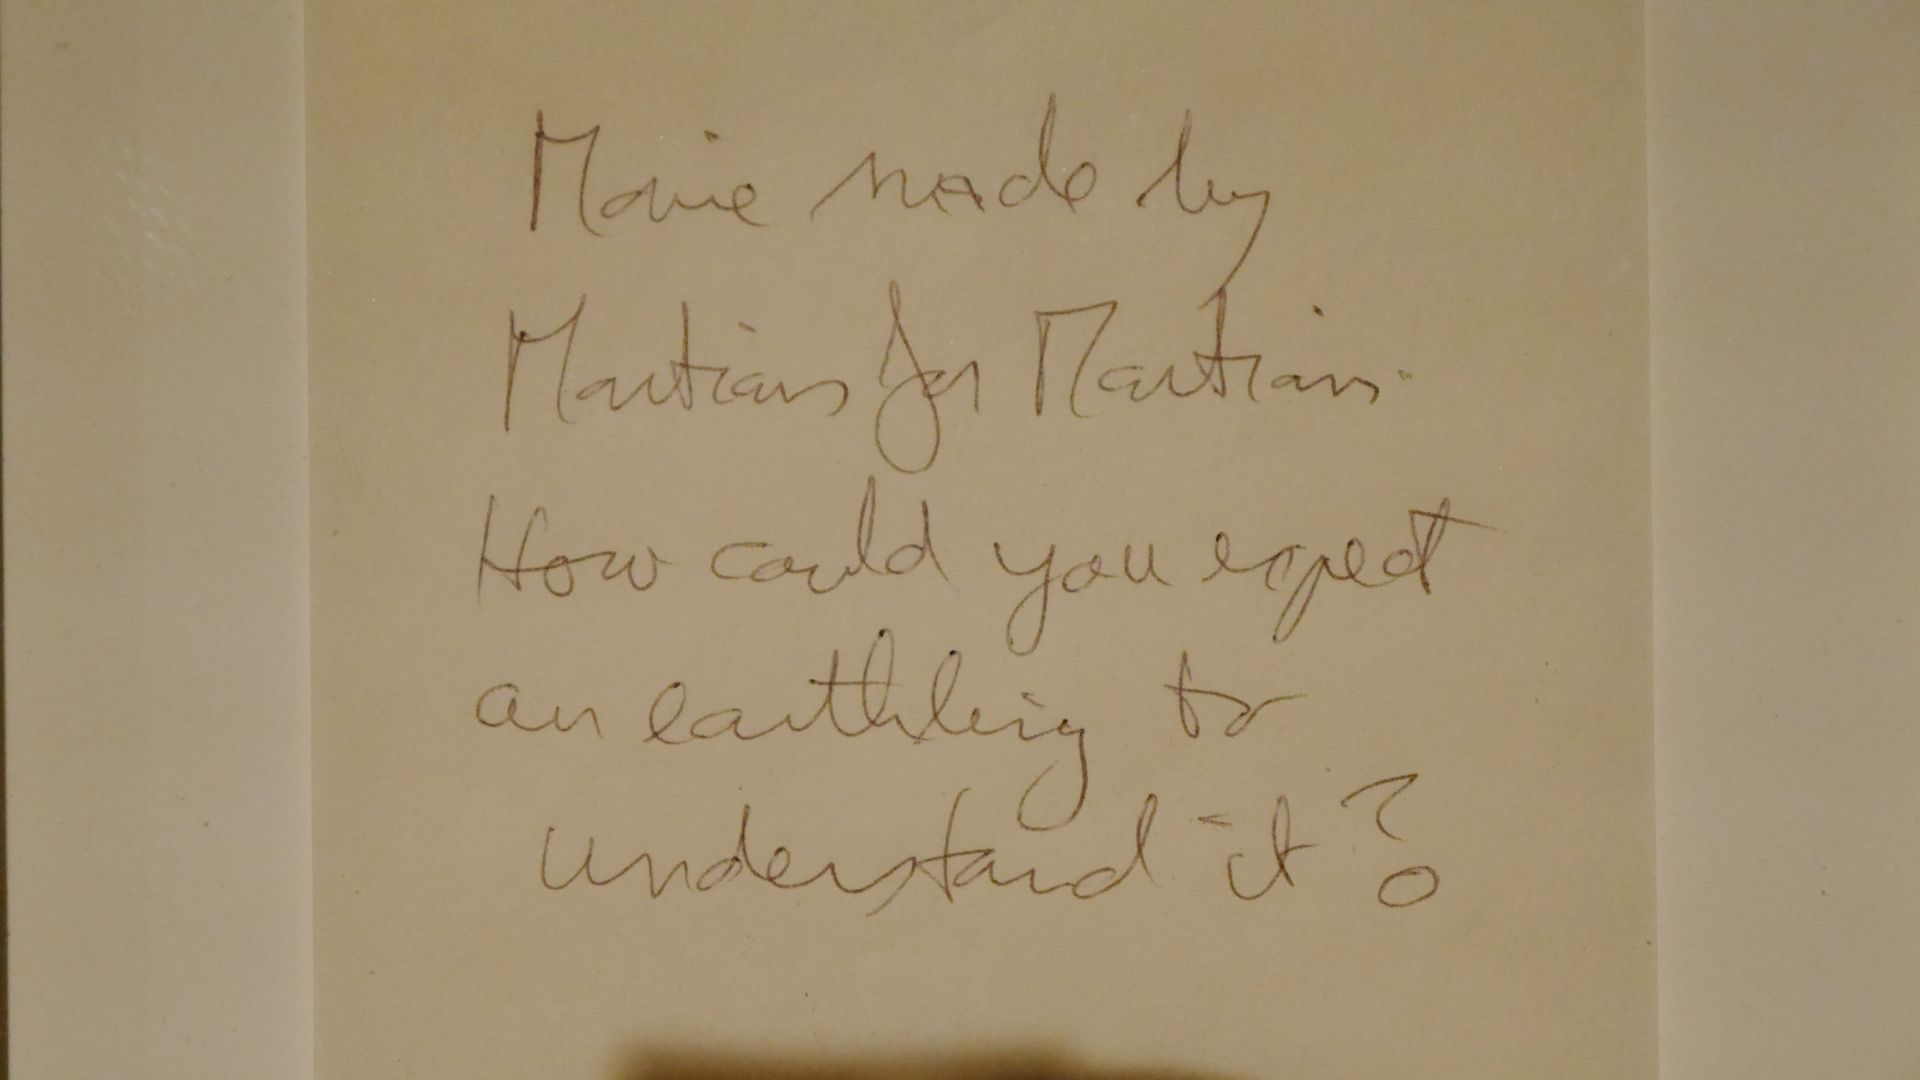 Movie made by
Martians for Martians.
How could you expect
an earthling to
understand it?